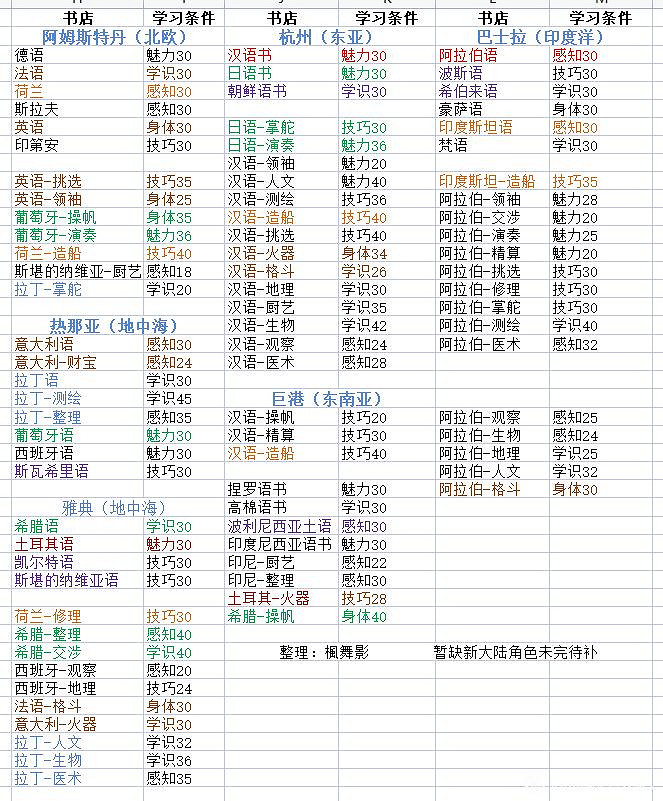 书店 学习条件 书店 学习条件 书店 学习条件
阿姆斯特丹（北欧） 杭州（东亚） 巴士拉（印度洋）
德语 魅力30 汉语书 魅力30 阿拉伯语 感知30
法语 学识30 日语书 魅力30 波斯语 技巧30
荷兰 感知30 朝鲜语书 学识30 希伯来语 学识30
斯拉夫 感知30 豪萨语 身体30
英语 身体30 日语-掌舵 技巧30 印度斯坦语 感知30
印第安 技巧30 日语-演奏 魅力36 梵语 学识30
汉语-领袖 魅力20
英语-挑选 技巧35 汉语-人文 魅力40 印度斯坦-造船 技巧35
英语-领袖 身体25 汉语-测绘 技巧36 阿拉伯-领袖 魅力28
葡萄牙-操帆 身体35 汉语-造船 技巧40 阿拉伯-交涉 魅力20
葡萄牙-演奏 魅力36 汉语-挑选 技巧40 阿拉伯-演奏 魅力25
荷兰-造船 技巧40 汉语-火器 身体34 阿拉伯-精算 魅力20
斯堪的纳维亚-厨艺 感知18 汉语-格斗 学识26 阿拉伯-挑选 技巧30
拉丁-掌舵 学识20 汉语-地理 学识30 阿拉伯-修理 技巧30
汉语-厨艺 学识35 阿拉伯-掌舵 技巧30
热那亚（地中海） 汉语-生物 学识42 阿拉伯-测绘 学识40
意大利语 感知30 汉语-观察 感知24 阿拉伯-医术 感知32
意大利-财宝 感知24 汉语-医术 感知28
拉丁语 学识30
拉丁-测绘 学识45 巨港（东南亚）
拉丁-整理 感知35 汉语-操帆 技巧20 阿拉伯-观察 感知25
葡萄牙语 魅力30 汉语-精算 技巧30 阿拉伯-生物 感知24
西班牙语 魅力30 汉语-造船 技巧40 阿拉伯-地理 学识25
斯瓦希里语 技巧30 阿拉伯-人文 学识32
捏罗语书 魅力30 阿拉伯-格斗 身体30
雅典（地中海） 高棉语书 学识30
希腊语 学识30 波利尼西亚土语 感知30
土耳其语 魅力30 印度尼西亚语书 魅力30
凯尔特语 技巧30 印尼-厨艺 感知22
斯堪的纳维亚语 技巧30 印尼-整理 感知30
土耳其-火器 技巧28
荷兰-修理 技巧30 希腊-操帆 身体40
希腊-整理 感知40
希腊-交涉 学识40 整理：楓舞影 暂缺新大陆角色未完待补
西班牙-观察 感知20
西班牙-地理 技巧24
法语-格斗 身体30
意大利-火器 学识30
拉丁-人文 学识32
拉丁-生物 学识36
拉丁-医术 感知35